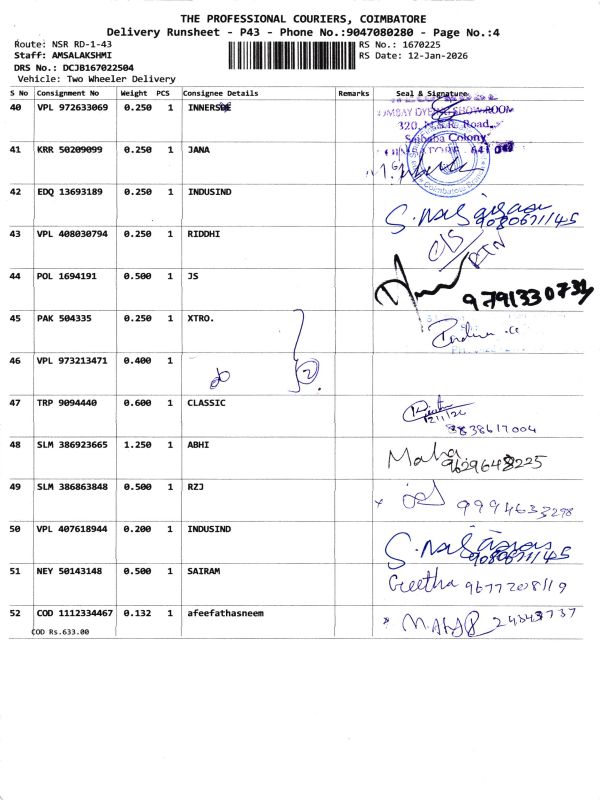 THE PROFESSIONAL COURIERS, COIMBATORE
Delivery Runsheet - P43 - Phone No.:9047080280 - Page No.:4
Route: NSR RD-1-43 RS No.: 1670225
Staff: AMSALAKSHMI RS Date: 12-Jan-2026
DRS No.: DCJB167022504
Vehicle: Two Wheeler Delivery
S No Consignment No Weight PCS Consignee Details Remarks Seal & Signature
40 VPL 972633069 0.250 1
320, Road,
Saibaba Colony
41 KRR 50209099 0.250 1 JANA
42 EDQ 13693189 0.250 1 INDUSIND
9080671145
43 VPL 408030794 0.250 1 RIDDHI
44 POL 1694191 0.500 1 JS
9791330731
45 PAK 504335 0.250 1 XTRO.
46 VPL 973213471 0.400 1
2
47 TRP 9094440 0.600 1 CLASSIC
12/1/26
8838617004
48 SLM 386923665 1.250 1 ABHI Maha
9629648225
49 SLM 386863848 0.500 1 RZJ
9994633298
50 VPL 407618944 0.200 1 INDUSIND
9080671145
51 NEY 50143148 0.500 1 SAIRAM Geetha 9677208119
52 COD 1112334467 0.132 1 afeefathasneem
COD Rs.633.00